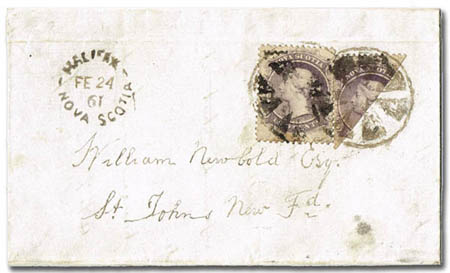 HALIFAX
FE 24
61
NOVA SCOTIA
NOVA SCOTIA
William Newbold Esq.
St Johns New Fd.